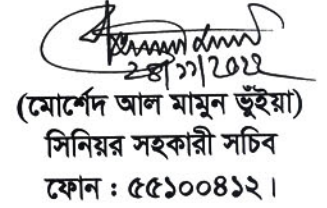 ২৪/১১/২০২২
(মোর্শেদ আল মামুন ভূঁইয়া)
সিনিয়র সহকারী সচিব
ফোন : ৫৫১০০৪১২।